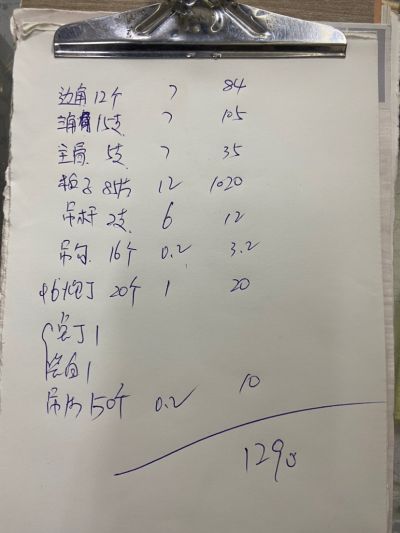 边角 12个 7 84
15支 7 105
主骨 5支 7 35
板子 85片 12 1020
吊杆 2支 6 12
吊勾 16个 0.2 3.2
炮丁 20个 1 20
丁 1
1
吊片 50个 0.2 10
129